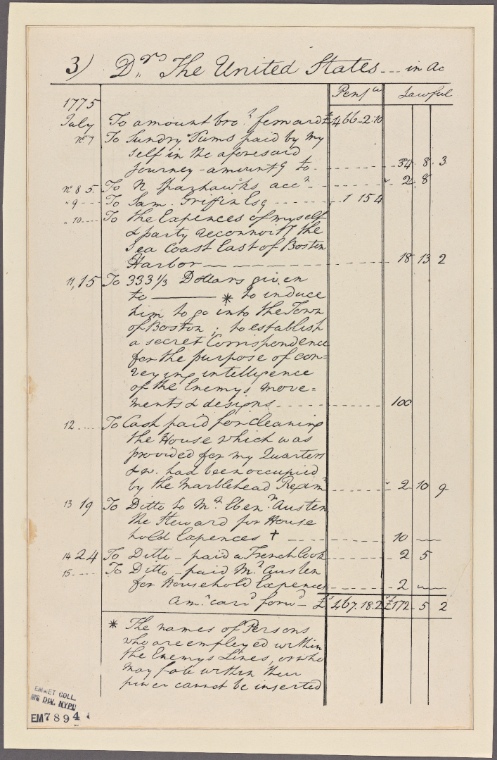 3) Drs The United States --- in Ac
Pensa Lawful
1775
July To amount brot forward £ 466.2.10
No 7 To Sundry Sums paid by my
self in the aforesaid
journey - amountg to -- 34 8 3
No 8 5 To N Sparhawks acct -- 2 8
" 9 -- To Sam. Griffin Esq -- 1 15 4
" 10 --- To the Expences of myself
& party reconnoitg the
Sea Coast East of Boston
Harbor --- 18 13 2
11, 15 To 333 1/3 Dollars given
to ——— * to induce
him to go into the Town
of Boston; to establish
a secret Correspondence
for the purpose of con-
veying intelligence
of the Enemys move-
ments & designs --- 100
12 --- To Cash paid for cleaning
the House which was
provided for my Quarters
& wh had been occupied
by the Marblehead Regimt -- 2 10 9
13 19 To Ditto to Mr Ebenr Austen
the Steward for House
hold Expences † -- 10 —
14 24 To Ditto - paid a French Cook -- 2 5
15 --- To Ditto - paid Mr Austen
for Household Expences -- 2 —
Amt card forwd £ 467.18.2 £172 5 2
* The names of Persons
who are employed within
the Enemys Lines, or who
may fall within their
power cannot be inserted
EMMET COLL.
MS DIV. NYPL
EM7894